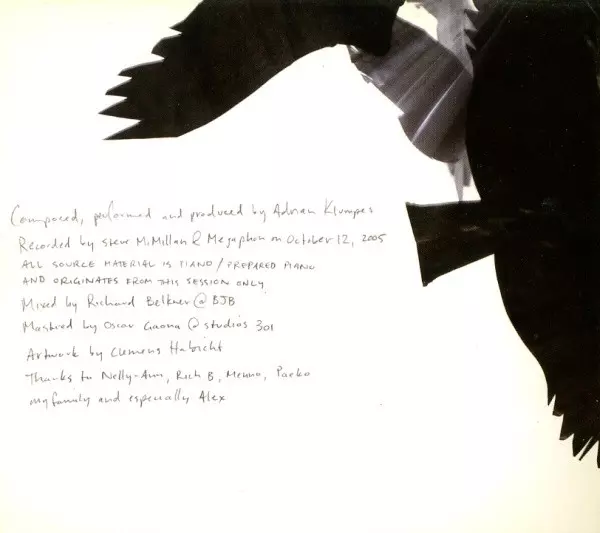 Composed, performed and produced by Adrian Klumpes
Recorded by Steve McMillan @ Megaphon on October 12, 2005
ALL SOURCE MATERIAL IS PIANO / PREPARED PIANO
AND ORIGINATES FROM THIS SESSION ONLY.
Mixed by Richard Belkner @ BJB
Mastered by Oscar Gaona @ studios 301
Artwork by Clemens Habicht
Thanks to Nelly-Ann, Rich B, Menno, Paeko
my family and especially Alex